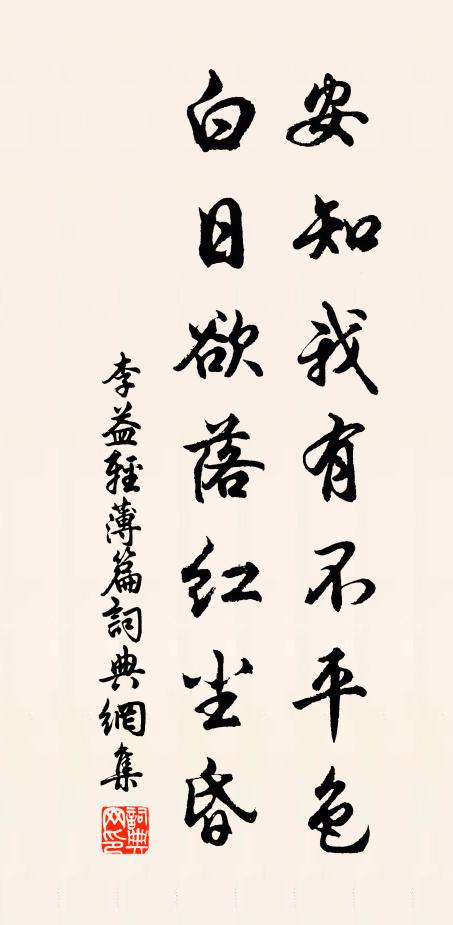 安知我有不平色
白日欲落红尘昏
李益輕薄篇詞典網集
詞典網印